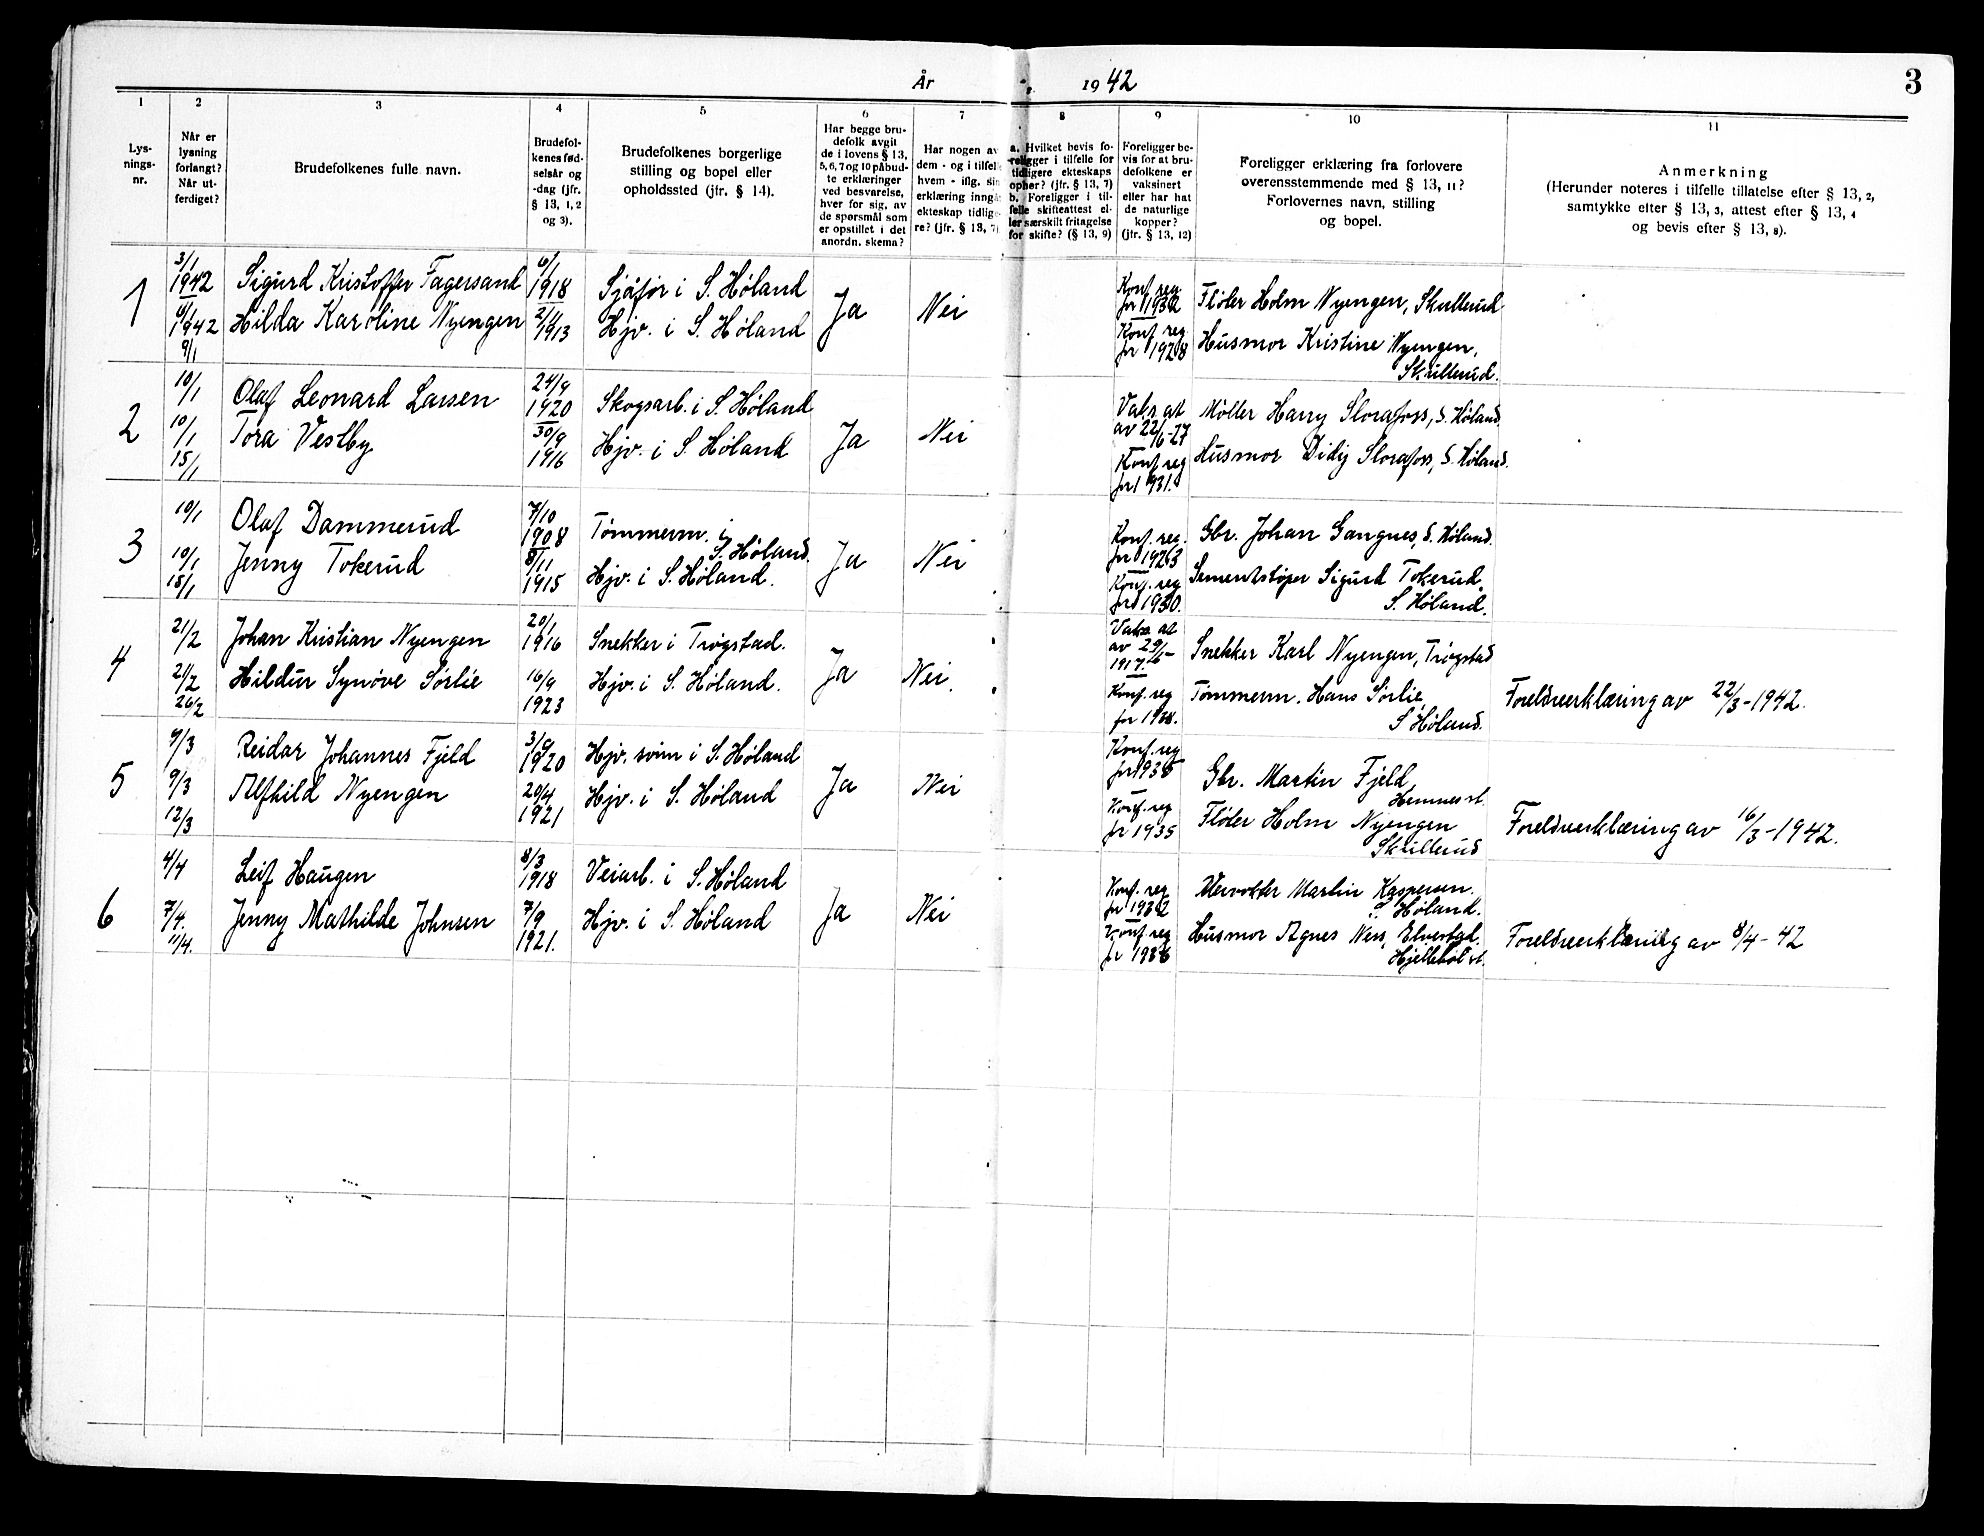 År 1942
3
1 2 3 4 5 6 7 8 9 10 11
Lys-
nings-
nr.
Når er
lysning
forlangt?
Når ut-
ferdiget?
Brudefolkenes fulle navn.
Brudefol-
kenes fød-
selsår og
-dag (jfr.
§ 13, 1, 2
og 3).
Brudefolkenes borgerlige
stilling og bopel eller
opholdssted (jfr. § 14).
Har begge bru-
defolk avgit
de i lovens § 13,
5, 6, 7 og 10 påbud-
te erklæringer
ved besvarelse,
hver for sig, av
de spørsmål som
er opstillet i det
anordn. skema?
Har nogen av
dem - og i tilfelle
hvem - iflg. sin
erklæring inngå
ekteskap tidlige-
re? (jfr. § 13, 7)
a. Hvilket bevis fo-
religger i tilfelle for
tidligere ekteskaps
ophør? (jfr. § 13, 7)
b. Foreligger i til-
felle skifteattest el-
ler særskilt fritagelse
for skifte? (§ 13, 9)
Foreligger be-
vis for at bru-
defolkene er
vaksinert
eller har hat
de naturlige
kopper?
(jfr. § 13, 12)
Foreligger erklæring fra forlovere
overensstemmende med § 13, 11?
Forlovernes navn, stilling
og bopel.
Anmerkning
(Herunder noteres i tilfelle tillatelse efter § 13, 2,
samtykke efter § 13, 3, attest efter § 13, 4
og bevis efter § 13, 8).
1
3/1
1942
6/1
1942
9/1
Sigurd Kristoffer Fagersand
Hilda Karoline Nyengen
6/1
1918
2/11
1913
Sjåfør i S. Høland
Hjv. i S. Høland
Ja
Nei
Konf. reg
for 1932
Konf. reg
for 1928
Fløter Holm Nyengen, Skullerud
Husmor Kristine Nyengen,
Skullerud.
2
10/1
10/1
15/1
Olaf Leonard Larsen
Tora Vestby
24/9
1920
30/9
1916
Skogsarb. i S. Høland
Hjv. i S. Høland
Ja
Nei
Vaks. at
av 22/6-27
Konf. reg
for 1931.
Møller Harry Slorafoss, S. Høland.
Husmor Didy Slorafoss, S. Høland.
3
10/1
10/1
15/1
Olaf Dammerud
Jenny Tokerud
7/10
1908
8/11
1915
Tømmerm. i
S. Høland.
Hjv. i S. Høland.
Ja
Nei
Konf. reg.
for 1923
Konf. reg
for 1930.
Gbr. Johan Gangnes, S. Høland.
Sementstøper Sigurd Tokerud,
S. Høland.
4
21/2
21/2
26/2
Johan Kristian Nyengen
Hildur Synøve Sørlie
20/1
1916
16/9
1923
Snekker i Trøgstad.
Hjv. i S. Høland.
Ja
Nei.
Vaks at
av 29/6-
1917.
Konf. reg
for 1938.
Snekker Karl Nyengen, Trøgstad
Tømmerm. Hans Sørlie,
S Høland.
Foreldreerklæring av 22/3-1942.
5
9/3
9/3
12/3
Reidar Johannes Fjeld
Alfhild Nyengen
3/6
1920
20/4
1921
Hjv. sønn i S. Høland
Hjv. i S. Høland
Ja
Nei
Konf. reg
for 1935
Konf. reg
for 1935
Gbr. Martin Fjeld,
Hemnes st.
Fløter Holm Nyengen
Skullerud
Foreldreerklæring av 16/3-1942.
6
4/4
7/4.
11/4.
Leif Haugen
Jenny Mathilde Johnsen
8/3
1918
7/9
1921.
Veiarb. i S. Høland
Hjv. i S. Høland
Ja
Nei
Konf. reg
for 1932
Konf. reg
for 1936
Veivokter Martin Kaspersen.
S. Høland.
Husmor Agnes Ness, Elvestad.
Hjellebøl st.
Foreldreerklæring av 8/4-42